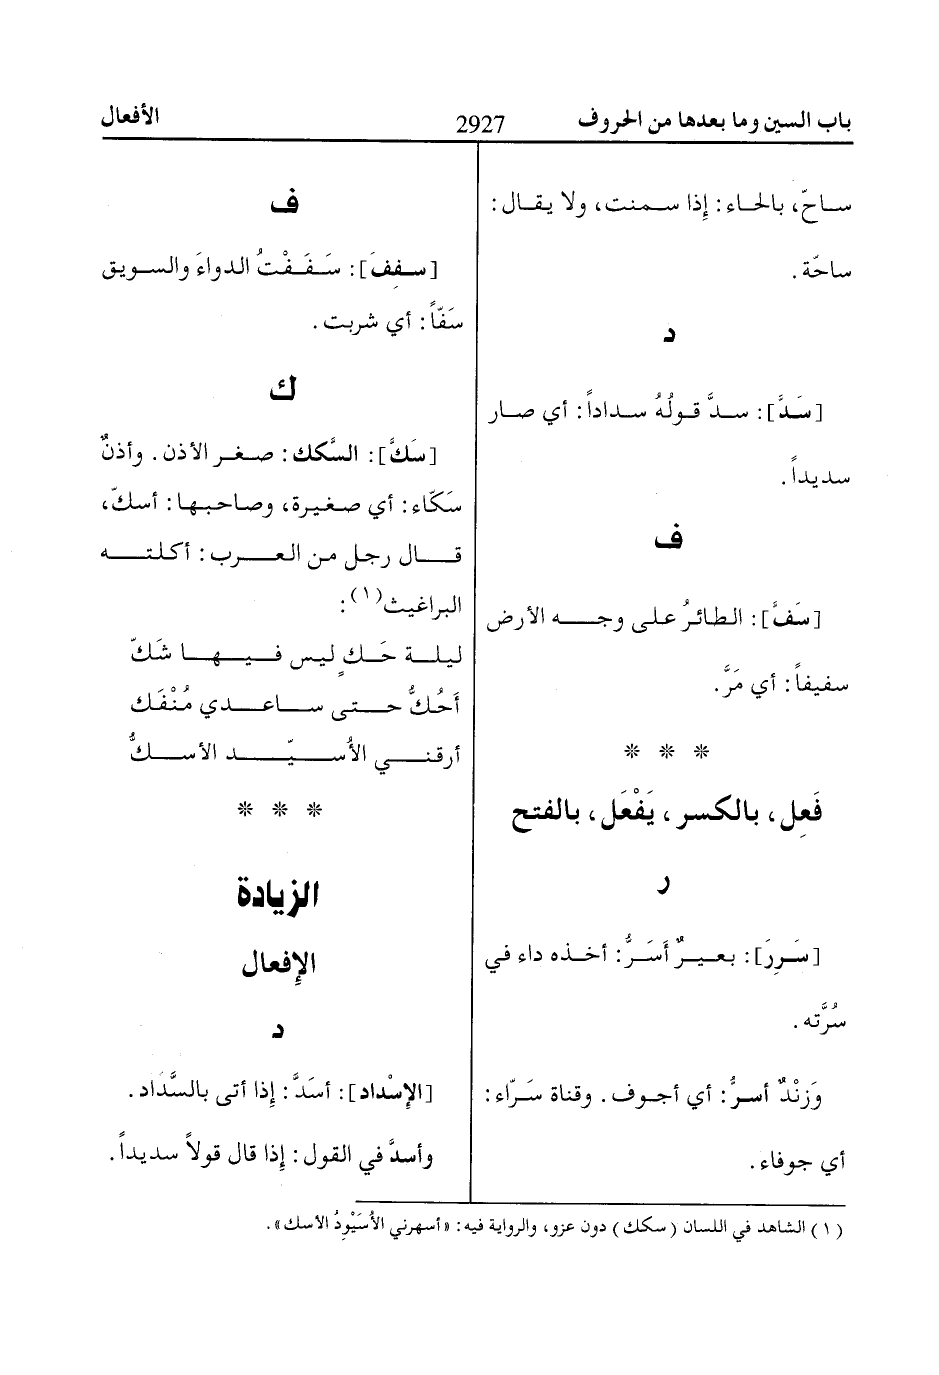 باب السين وما بعدها من الحروف 2927 الأفعال
ساحّ، بالحاء: إذا سمنت، ولا يقال:
ساحّة.
د
[سَدَّ]: سدَّ قولُهُ سداداً: أي صار
سديداً.
ف
[سَفَّ]: الطائرُ على وجه الأرض
سفيفاً: أي مَرَّ.
* * *
فَعِل، بالكسر، يَفْعَل، بالفتح
ر
[سَرِرَ]: بعيرٌ أَسَرُّ: أخذه داء في
سُرَّته.
وَزنْدٌ أسرُّ: أي أجوف. وقناة سَرّاء:
أي جوفاء.
ف
[سفِفَ]: سَفَفْتُ الدواءَ والسويق
سَفّاً: أي شربت.
ك
[سَكَّ]: السَّكك: صغر الأذن. وأذنٌ
سَكّاء: أي صغيرة، وصاحبها: أسكّ،
قال رجل من العرب: أكلته
البراغيث(١):
ليلة حَكٍ ليس فيها شَكّ
أَحُكُّ حتى ساعدي مُنْفَك
أرقني الأُسيّد الأسكُّ
* * *
الزيادة
الإفعال
د
[الإسْداد]: أسَدَّ: إذا أتى بالسَّدَاد.
وأسدَّ في القول: إذا قال قولاً سديداً.
(١) الشاهد في اللسان (سكك) دون عزو، والرواية فيه: «أسهرني الأُسَيْوِدُ الأسك».